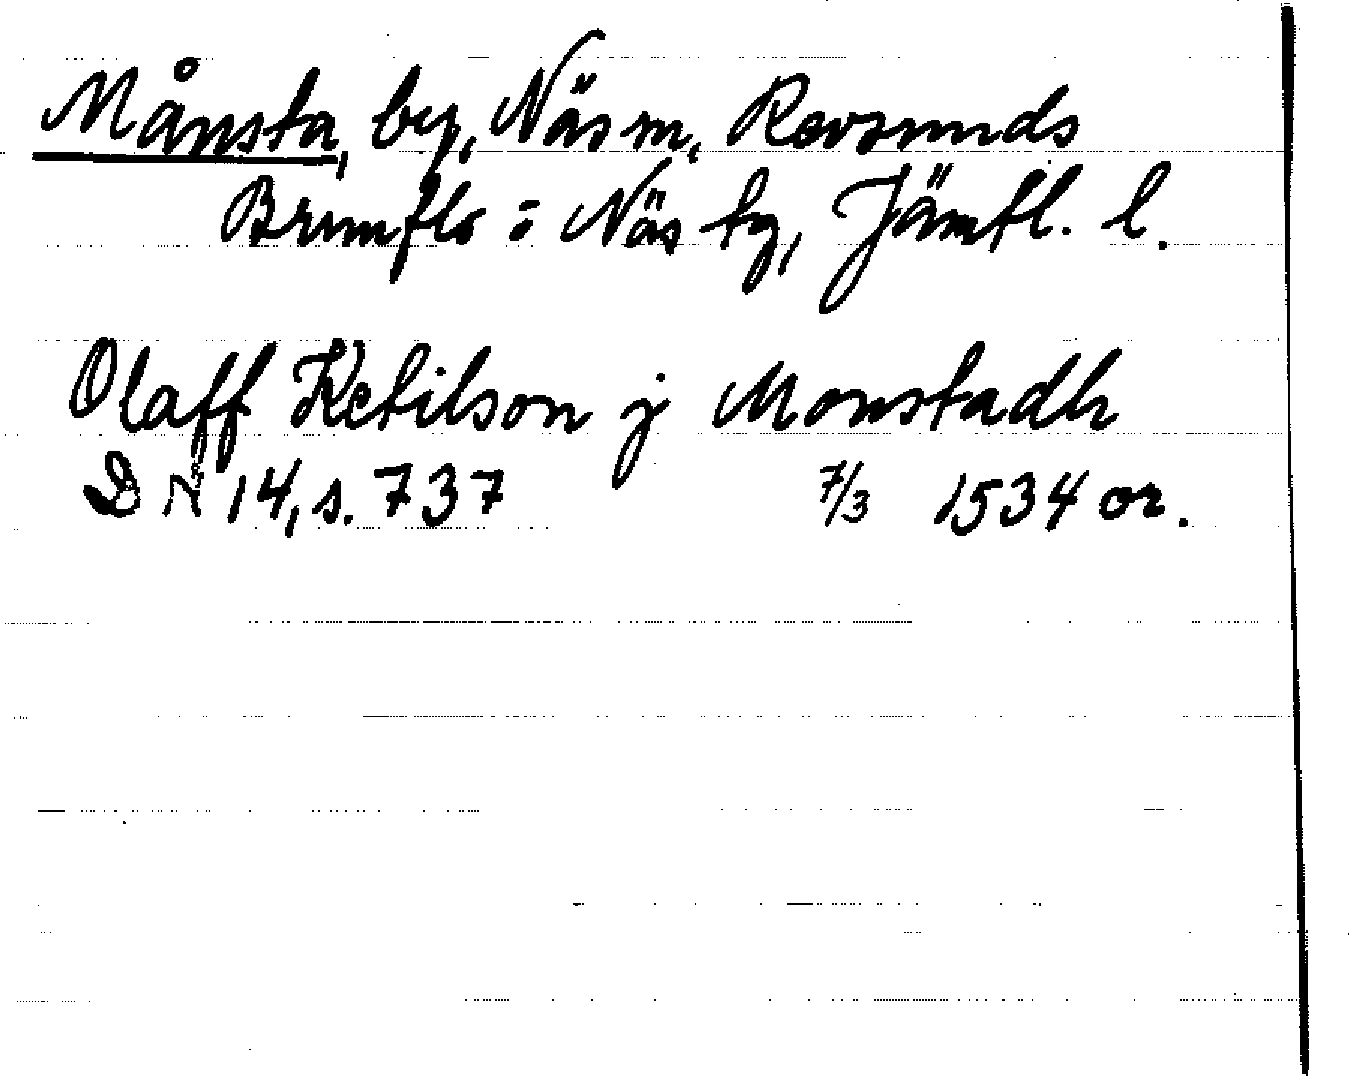 Månsta, by, Näs sn, Revsunds
Brunflo o Näs tg, Jämtl. l.
Olaff Ketilson j Monstadh
DN 14, s. 737 7/3 1534 or.